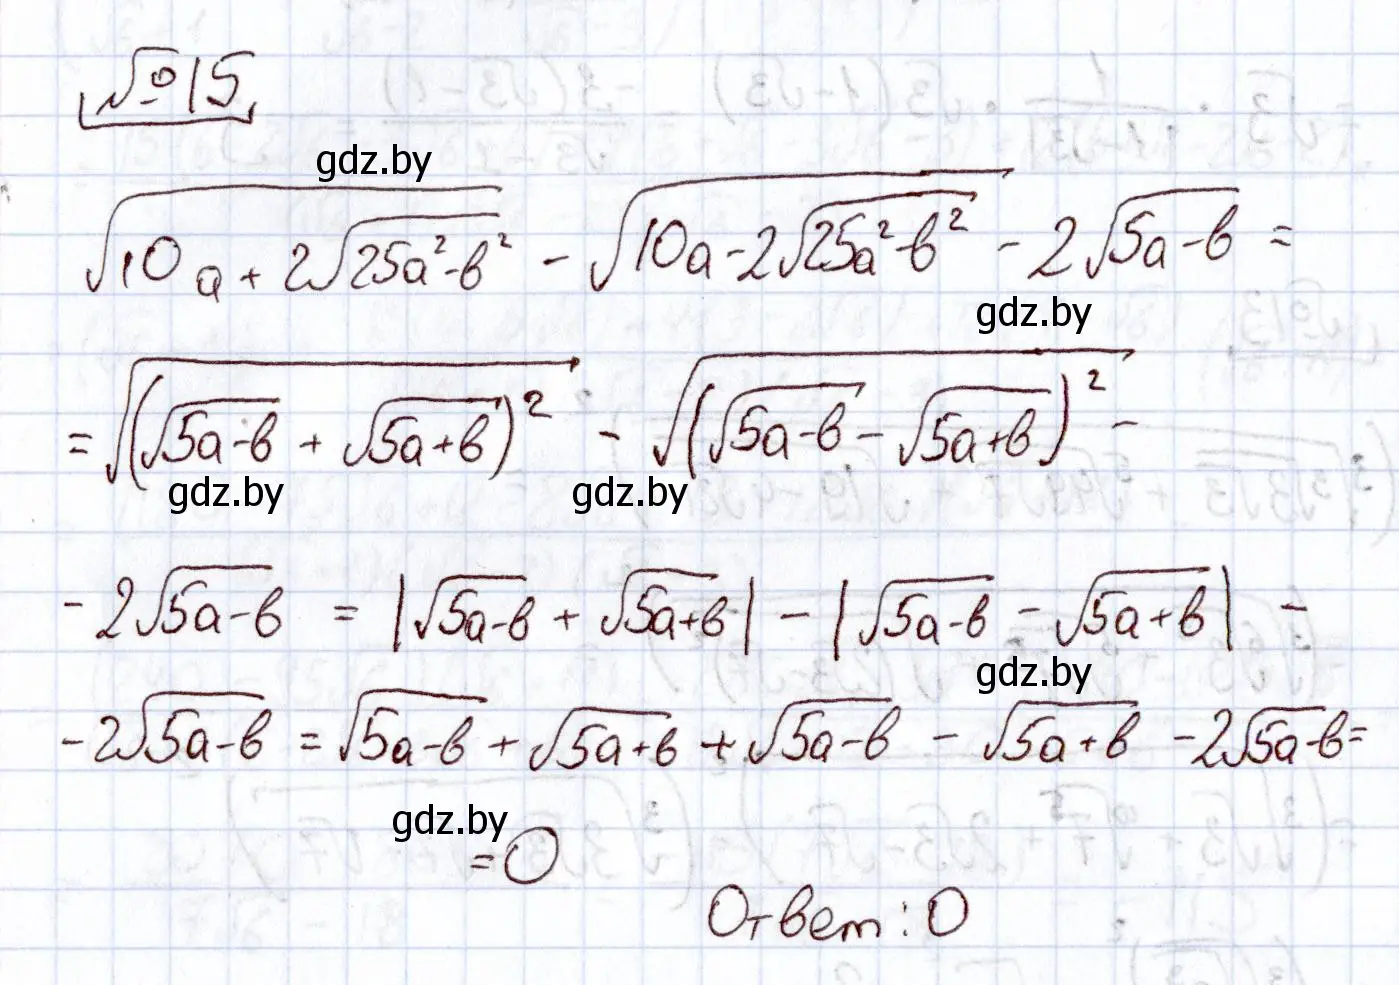 №15
gdz.by
√(10a + 2√(25a² - b²)) - √(10a - 2√(25a² - b²)) - 2√(5a - b) =
gdz.by
= √((√(5a - b) + √(5a + b))²) - √((√(5a - b) - √(5a + b))²) -
gdz.by gdz.by
- 2√(5a - b) = |√(5a - b) + √(5a + b)| - |√(5a - b) - √(5a + b)| -
gdz.by
- 2√(5a - b) = √(5a - b) + √(5a + b) + √(5a - b) - √(5a + b) - 2√(5a - b) =
gdz.by
= 0
Ответ: 0